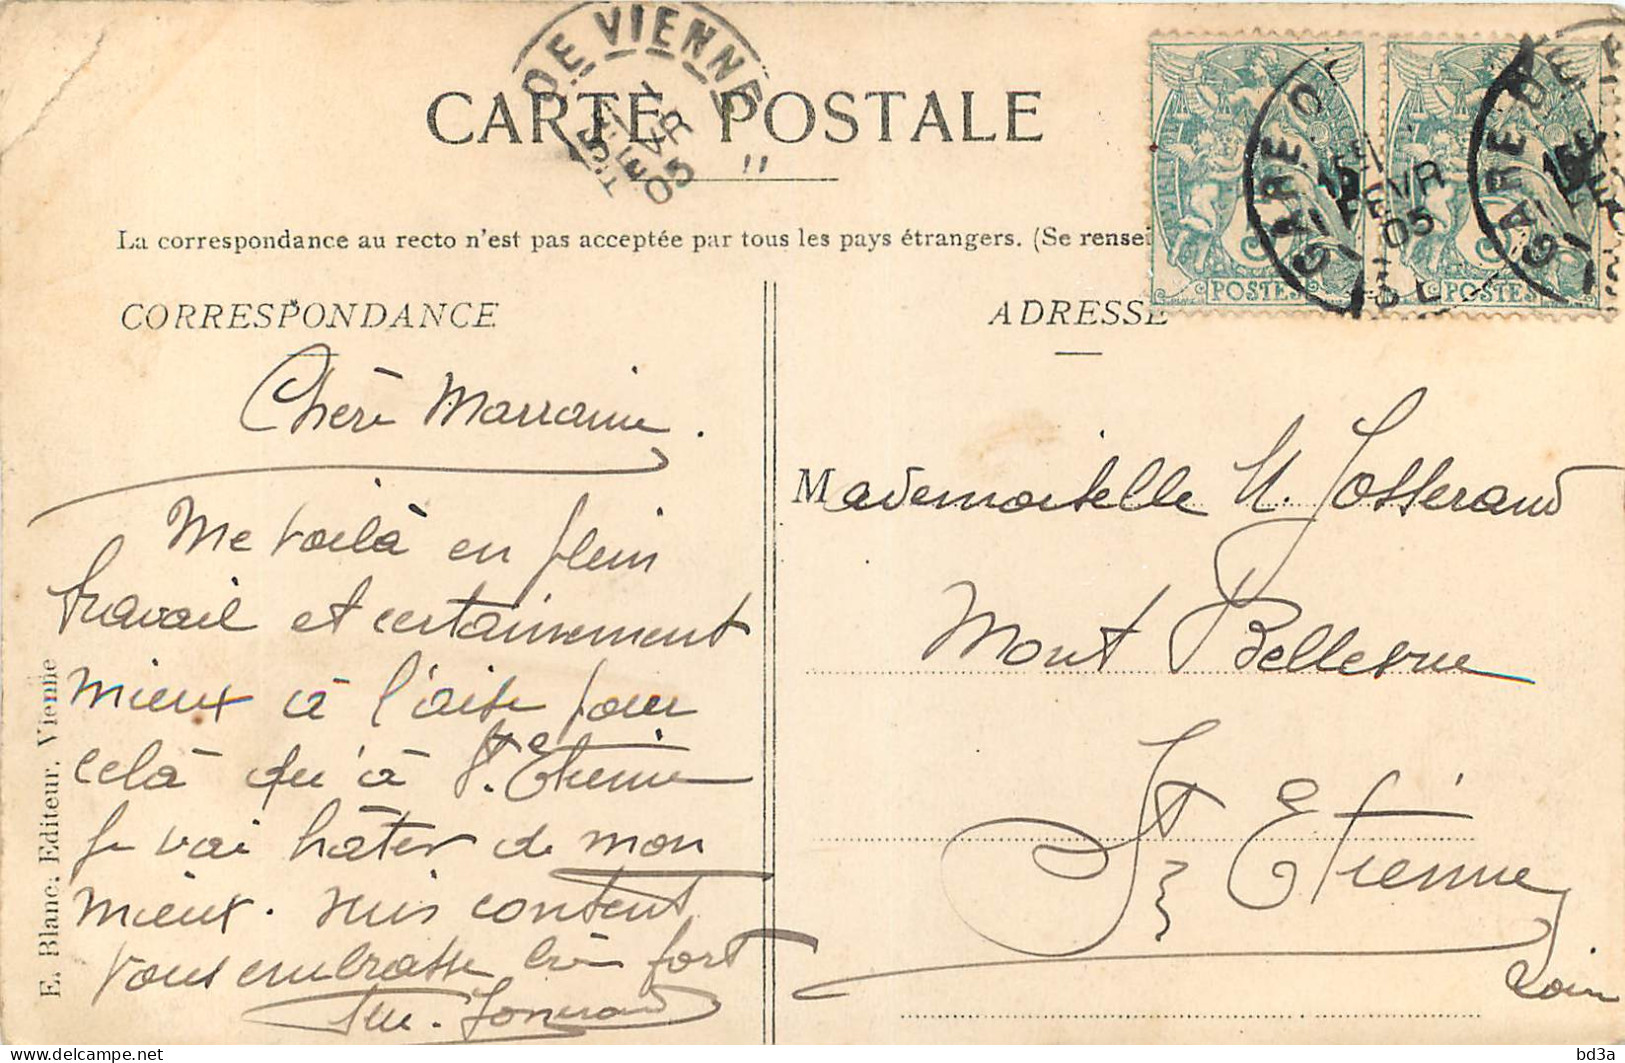 DE VIENNE
FEVR
05
CARTE POSTALE
La correspondance au recto n'est pas acceptée par tous les pays étrangers. (Se rensei
POSTES
POSTES
GARE DE
FEVR
05
GARE DE
CORRESPONDANCE
ADRESSE
Chère Marraine.
Me voilà en plein
travail et certainement
mieux à l'aise pour
celà qu'à St. Etienne
Je vai hâter de mon
mieux. suis content
vous embrasse bien fort
Mademoiselle M. Josserand
Mont Bellevue
St Etienne
Loire
E. Blanc, Editeur. Vienne
bd3a